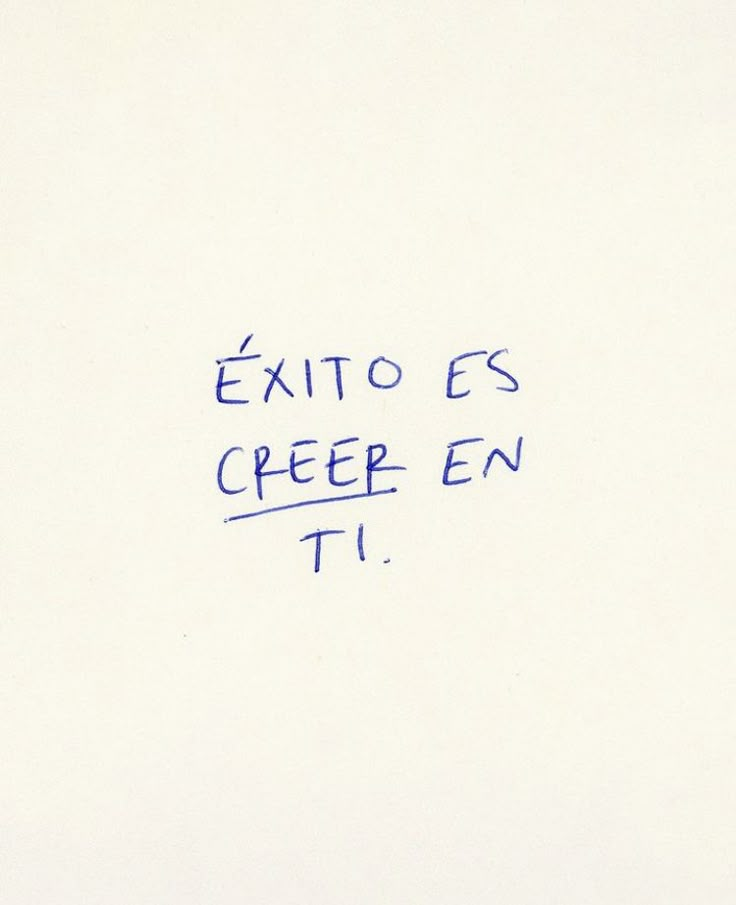 ÉXITO ES
CREER EN
TI.